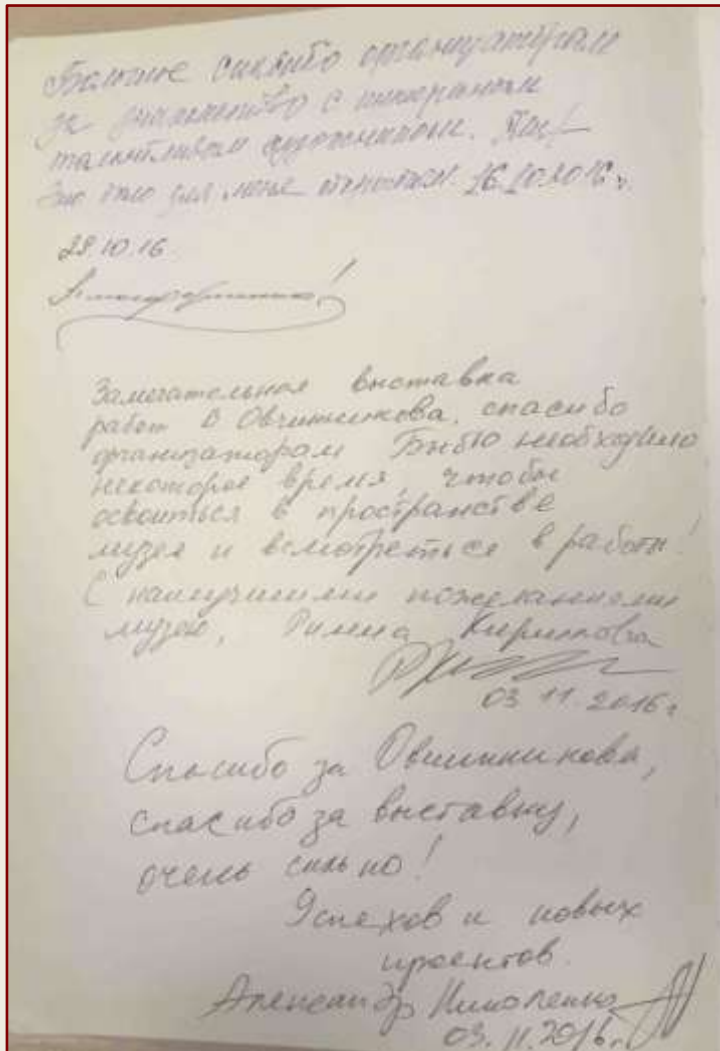 Большое спасибо организаторам
за знакомство с интересным
талантливым художником.
Это было для меня открытием. 26.10.2016 г.
29.10.16
Замечательная выставка
работ В Овчинникова, спасибо
организаторам Было необходимо
некоторое время, чтобы
освоиться в пространстве
музея и всмотреться в работы!
С наилучшими пожеланиями
музею, Римма
03 11. 2016 г
Спасибо за Овчинникова,
спасибо за выставку,
очень сильно!
Успехов и новых
проектов.
Александр Николенко
03. 11. 2016 г.